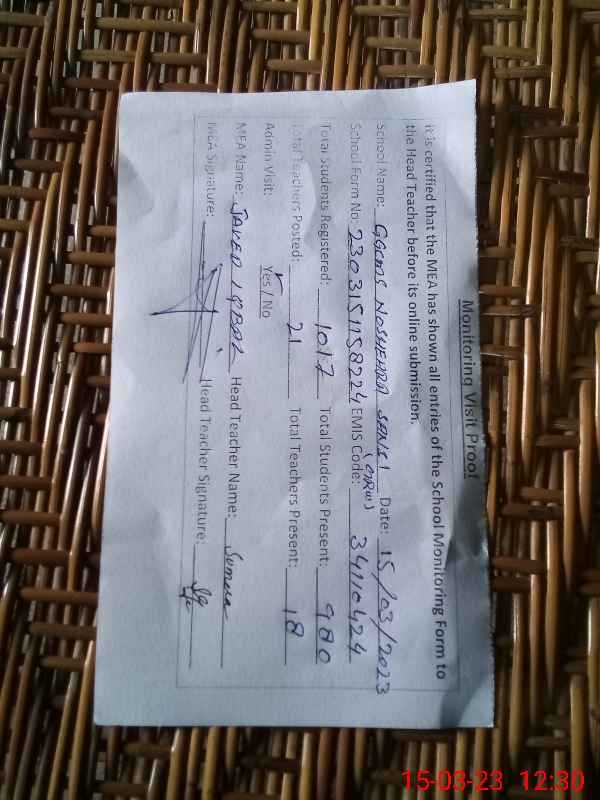 Monitoring Visit Proof
it is certified that the MEA has shown all entries of the School Monitoring Form to
the Head Teacher before its online submission.
School Name: GGCMS NOSHEHRA SANSI Date: 15/03/2023
School Form No: EMIS Code: 34110424
Total Students Registered: 1017 Total Students Present: 980
Total Teachers Posted: 21 Total Teachers Present: 18
Admin Visit: Yes / No
MEA Name: JAVED IQBAL Head Teacher Name: Sumera
MEA Signature: Head Teacher Signature:
15-03-23 12:30